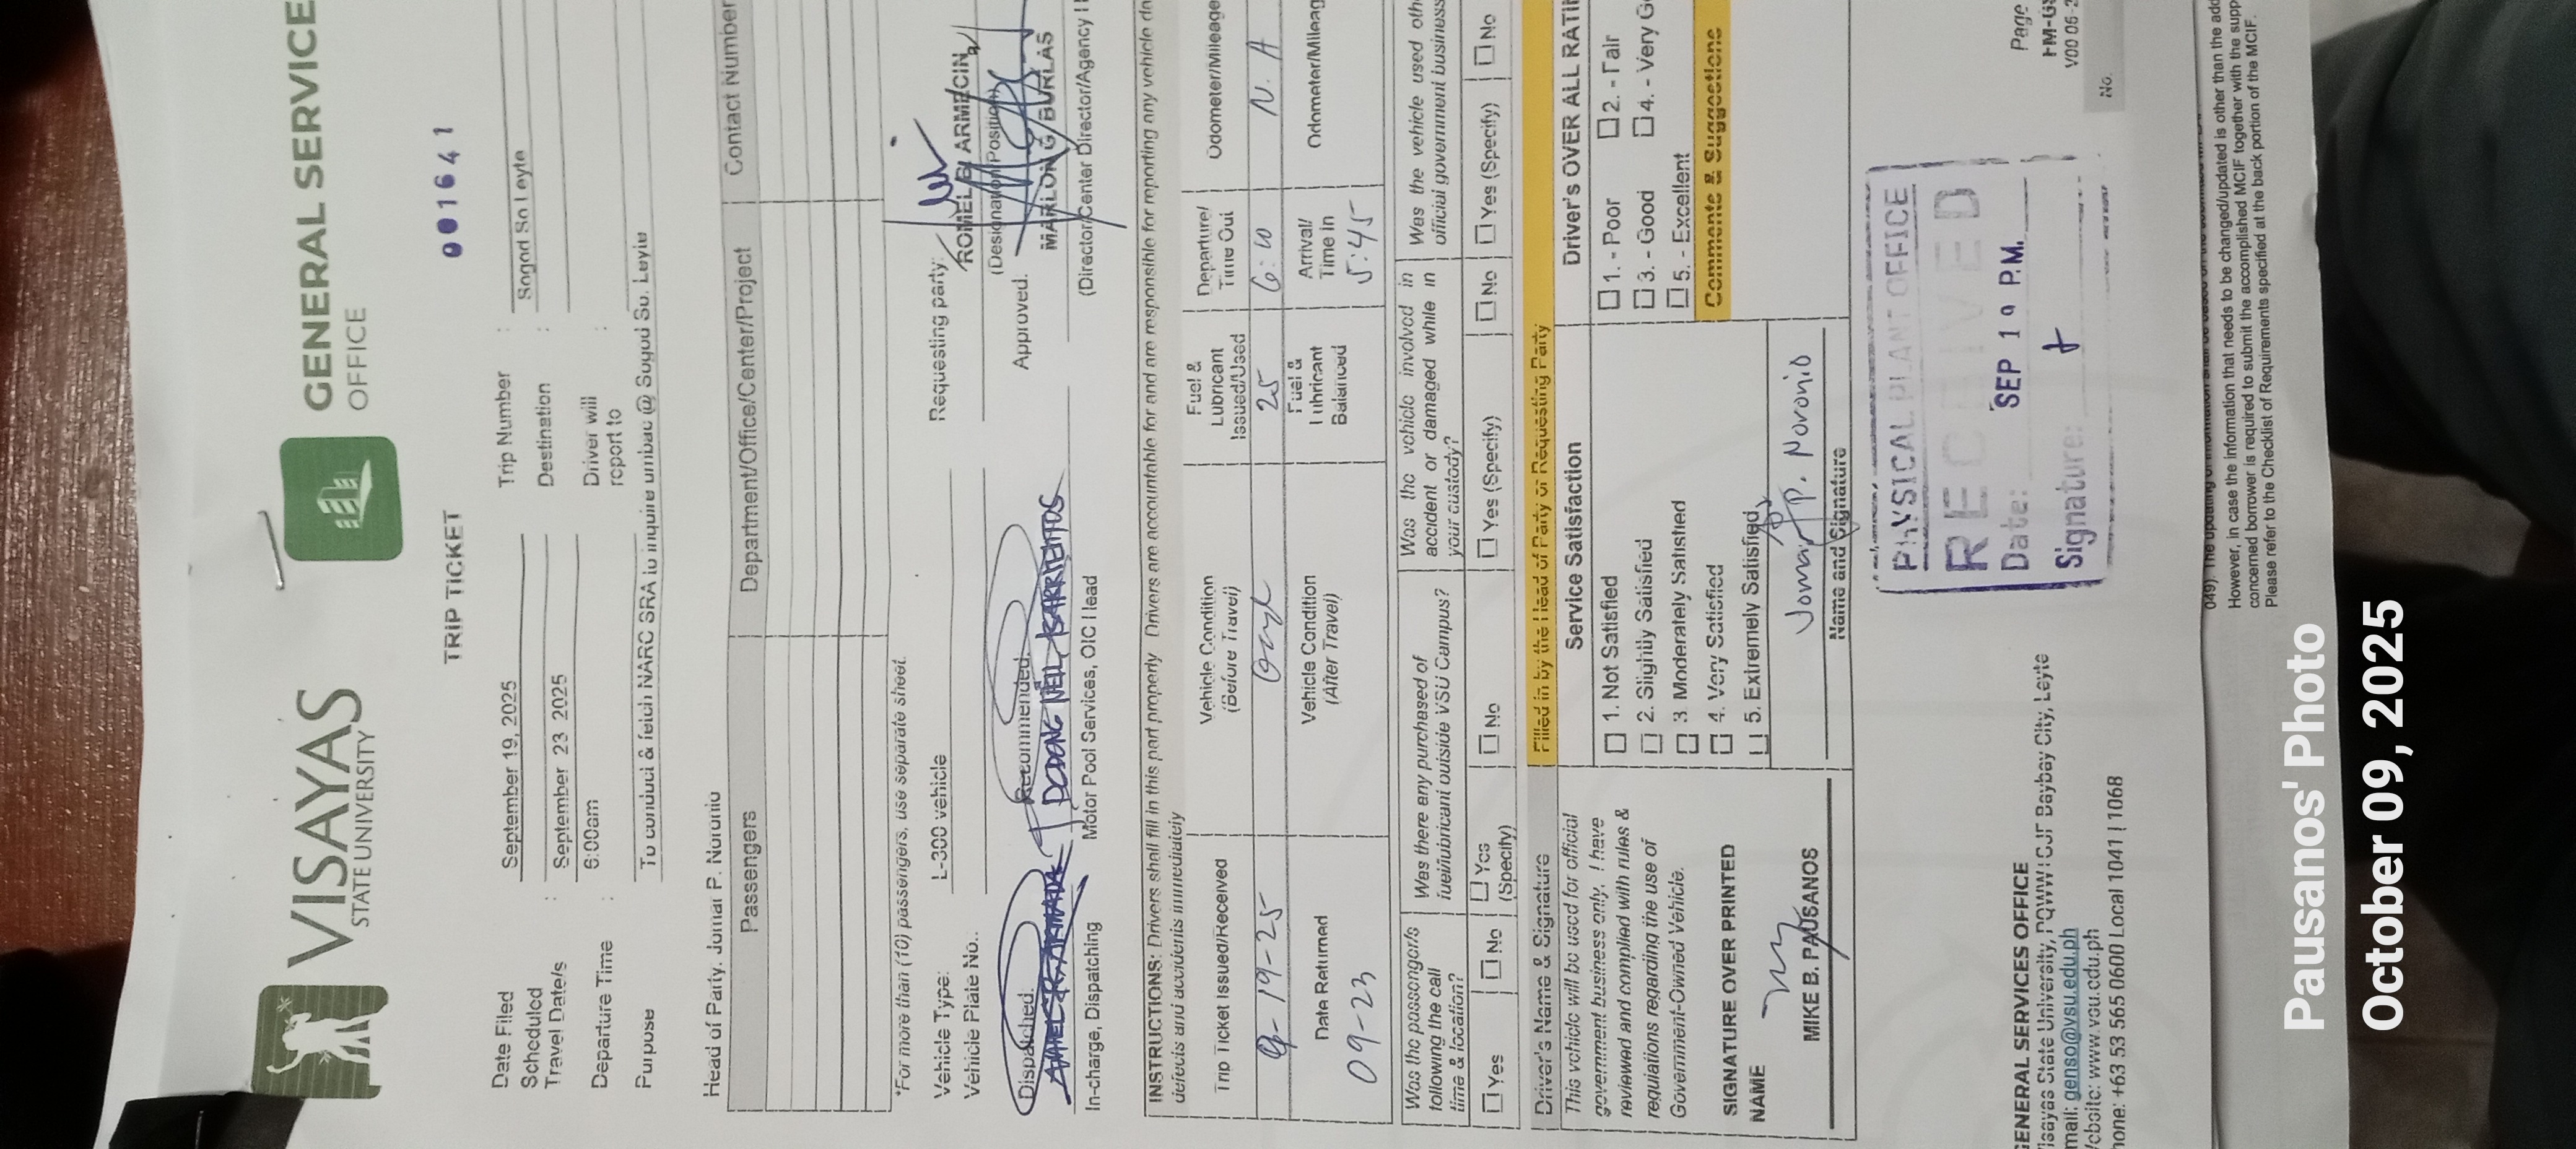 VISAYAS
STATE UNIVERSITY
GENERAL SERVICE
OFFICE
TRIP TICKET
001641
Date Filed September 19, 2025
Trip Number :
Scheduled Travel Date/s : September 23 2025
Destination : Sogod So Leyte
Departure Time : 6:00am
Driver will report to :
Purpose To conduct & fetch NARC SRA to inquire umbao @ Sogod So. Leyte
Head of Party. Jomar P. Noronio
Passengers Department/Office/Center/Project Contact Number
*For more than (10) passengers, use separate sheet.
Vehicle Type: L-300 vehicle
Vehicle Plate No..
Requesting party:
ROMEL B. ARMECIN
(Designation/Position)
Dispatched:
Recommended:
Approved:
MARLON G. BURLAS
In-charge, Dispatching
Motor Pool Services, OIC Head
(Director/Center Director/Agency
INSTRUCTIONS: Drivers shall fill in this part properly Drivers are accountable for and are responsible for reporting any vehicle
defects and accidents immediately
Trip Ticket Issued/Received
Vehicle Condition (Before Travel)
Fuel & Lubricant Issued/Used
Departure/ Time Out
Odometer/Mileage
9-19-25 25 6:00 N. A
Date Returned
Vehicle Condition (After Travel)
Fuel & Lubricant Balanced
Arrival/ Time In
Odometer/Mileag
09-23 5:45
Was the passenger/s following the call time & location?
Was there any purchased of fuel/lubricant outside VSU Campus?
Was the vehicle involved in accident or damaged while in your custody?
Was the vehicle used oth official government business
Yes No
Yes (Specify) No
Yes (Specify) No
Yes (Specify) No
Driver's Name & Signature
Filled in by the Head of Party or Requesting Party
This vehicle will be used for official
government business only. I have
reviewed and complied with rules &
regulations regarding the use of
Government-Owned Vehicle.
SIGNATURE OVER PRINTED
NAME
MIKE B. PAUSANOS
Service Satisfaction
1. Not Satisfied
2. Slightly Satisfied
3 Moderately Satisfied
4. Very Satisfied
5. Extremely Satisfied
Jomar P. Noronio
Name and Signature
Driver's OVER ALL RATI
1. - Poor 2. - Fair
3. - Good 4. - Very G
5. - Excellent
Comments & Suggestions
PHYSICAL PLANT OFFICE
RECEIVED
Date: SEP 19 P.M.
Signature:
GENERAL SERVICES OFFICE
Visayas State University, PQWW+CJF Baybay City, Leyte
mail: genso@vsu.edu.ph
ebsite: www.vsu.edu.ph
hone: +63 53 565 0600 Local 1041 | 1068
Page
FM-GS
V00 06-2
No.
However, in case the information that needs to be changed/updated is other than the add
concerned borrower is required to submit the accomplished MCIF together with the supp
Please refer to the Checklist of Requirements specified at the back portion of the MCIF.
Pausanos' Photo
October 09, 2025